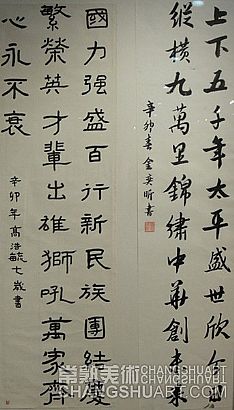 上下五千年太平盛世欣今朝
縱橫九萬里錦繡中華創未來
辛卯春金奕昕書
國力强盛百行新民族團結慶
繁榮英才輩出雄獅吼萬家齊
心永不衰
辛卯年高浩毓七歲書
常熟美術 CHANGSHUART
CHANGSHUART.COM